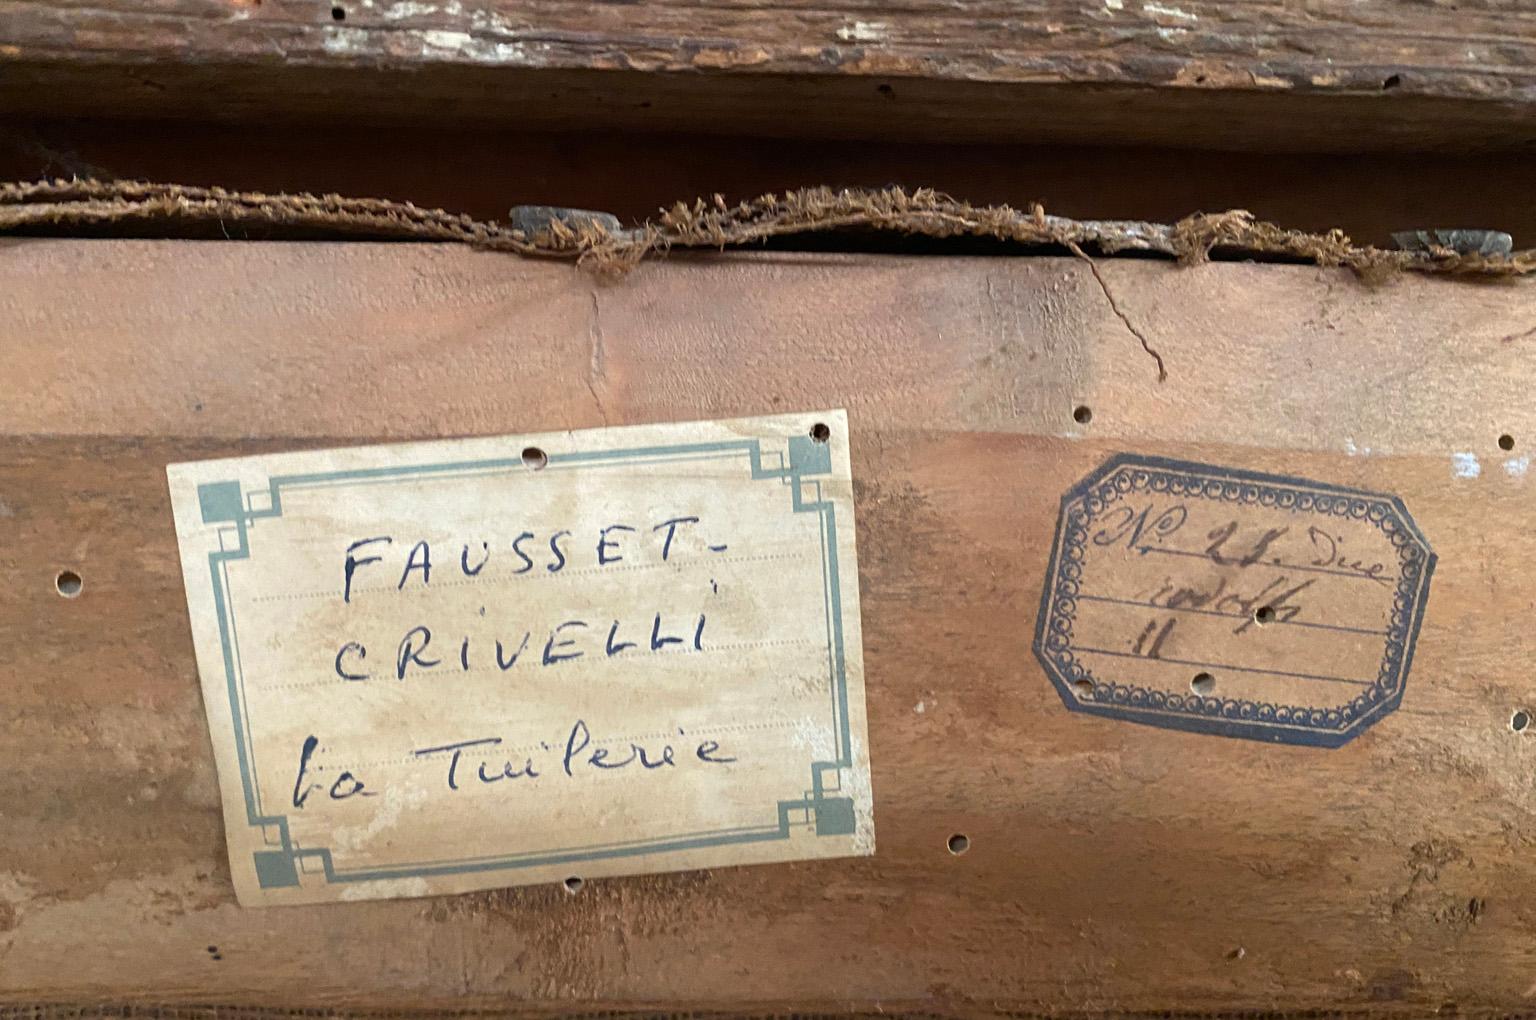 FAUSSET-
CRIVELLI
La Tuilerie
No. 28. due
11